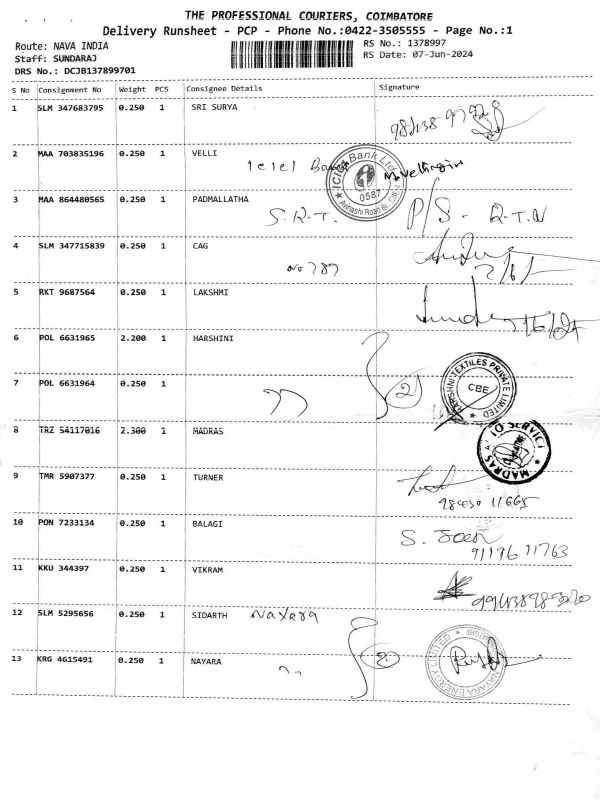 THE PROFESSIONAL COURIERS, COIMBATORE
Delivery Runsheet - PCP - Phone No.:0422-3505555 - Page No.:1
Route: NAVA INDIA
RS No.: 1378997
Staff: SUNDARAJ
RS Date: 07-Jun-2024
DRS No.: DCJB137899701
S No Consignment No Weight PCS Consignee Details Signature
1 SLM 347683795 0.250 1 SRI SURYA
2 MAA 703835196 0.250 1 VELLI
ICICI Bank Ltd. 0587 Avinashi Road Br.
3 MAA 864480565 0.250 1 PADMALLATHA
S.R.T. P/S - R.T.N
4 SLM 347715839 0.250 1 CAG
No 787
5 RKT 9687564 0.250 1 LAKSHMI
6 POL 6631965 2.200 1 HARSHINI
7 POL 6631964 0.250 1
2
TEXTILES PRIVATE LIMITED CBE
8 TRZ 54117016 2.300 1 MADRAS
MADRAS
9 TMR 5907377 0.250 1 TURNER
10 PON 7233134 0.250 1 BALAGI
S.
91176 11763
11 KKU 344397 0.250 1 VIKRAM
12 SLM 5295656 0.250 1 SIDARTH Nayara
13 KRG 4615491 0.250 1 NAYARA
2
NAYARA ENERGY LIMITED